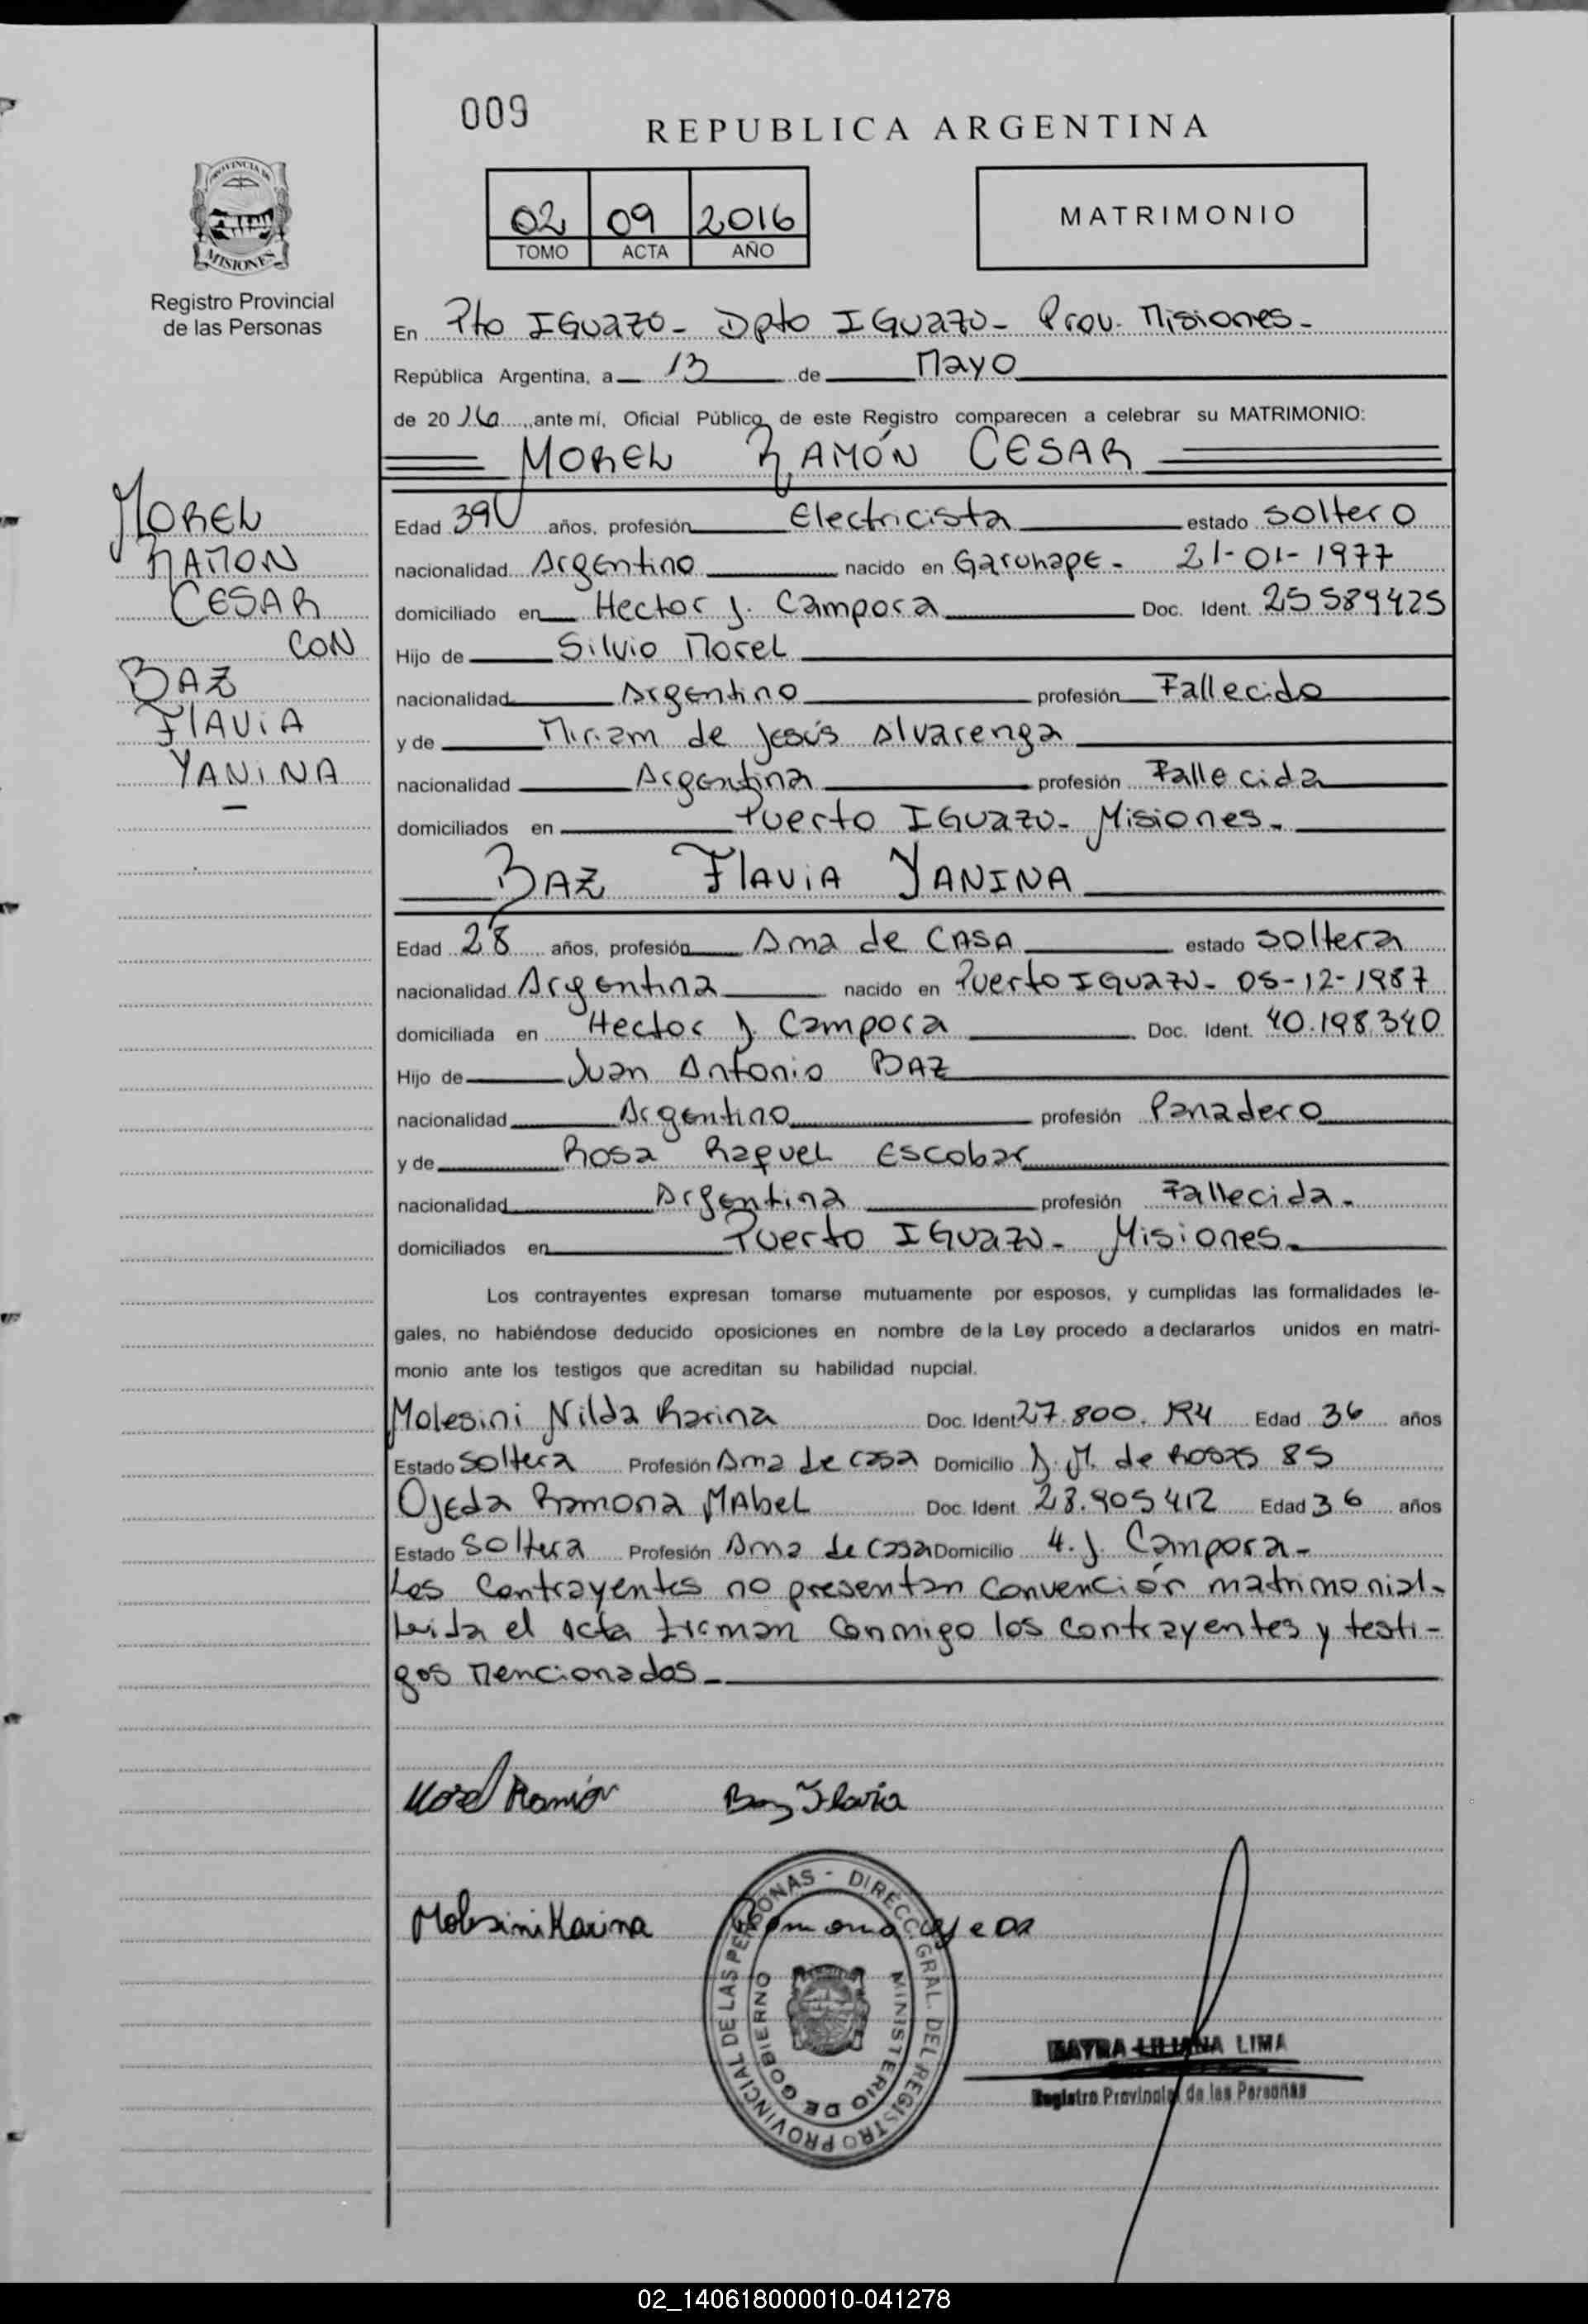 009
REPUBLICA ARGENTINA
PROVINCIA DE
MISIONES
Registro Provincial
de las Personas
02 09 2016
TOMO ACTA AÑO
MATRIMONIO
En Pto IGuazú - Dpto IGuazú - Prov. Misiones -
República Argentina, a 13 de Mayo
de 2016, ante mí, Oficial Público de este Registro comparecen a celebrar su MATRIMONIO:
MOREL RAMÓN CESAR
MOREL
RAMON
CESAR
CON
BAZ
FlAViA
YANiNA
Edad 39 años, profesión Electricista estado soltero
nacionalidad Argentino nacido en Garuhape - 21-01-1977
domiciliado en Hector J. Campora Doc. Ident. 25589425
Hijo de Silvio Morel
nacionalidad Argentino profesión Fallecido
y de Miriam de Jesús Alvarenga
nacionalidad Argentina profesión Fallecida
domiciliados en Puerto IGuazú - Misiones -
BAZ FlAViA YANINA
Edad 28 años, profesión Ama de CASA estado soltera
nacionalidad Argentina nacido en Puerto IGuazú - 05-12-1987
domiciliada en Hector J. Campora Doc. Ident. 40.198.340
Hijo de Juan Antonio BAZ
nacionalidad Argentino profesión Panadero
y de Rosa Raquel Escobar
nacionalidad Argentina profesión Fallecida -
domiciliados en Puerto IGuazú - Misiones -
Los contrayentes expresan tomarse mutuamente por esposos, y cumplidas las formalidades le-
gales, no habiéndose deducido oposiciones en nombre de la Ley procedo a declararlos unidos en matri-
monio ante los testigos que acreditan su habilidad nupcial.
Molesini Nilda Karina Doc. Ident 27.800.194 Edad 36 años
Estado soltera Profesión Ama de casa Domicilio J. M. de Rosas 85
Ojeda Ramona MAbel Doc. Ident. 28.905412 Edad 36 años
Estado soltera Profesión Ama de casa Domicilio H. J. Campora -
Los Contrayentes no presentan convención matrimonial -
Leida el acta firman conmigo los contrayentes y testi-
gos mencionados -
Morel Ramón Baz Flavia
Molesini Karina Ramona Ojeda
DIRECC. GRAL. DEL REGISTRO PROVINCIAL DE LAS PERSONAS -
MINISTERIO DE GOBIERNO
LILIANA LIMA
Registro Provincial de las Personas
02_140618000010-041278